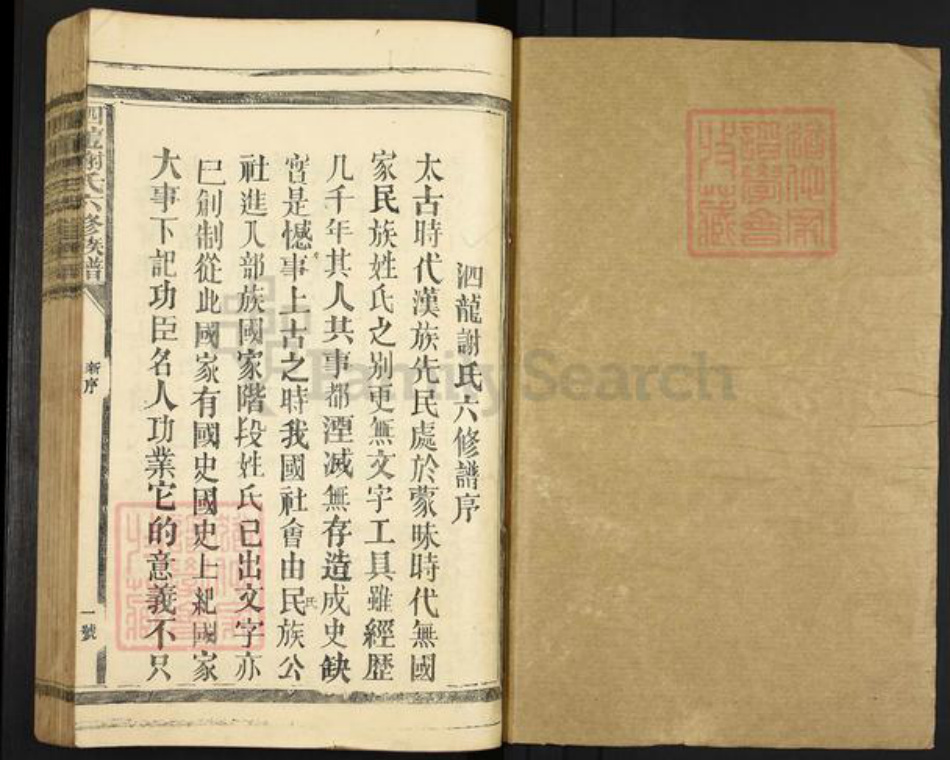 泗龍謝氏六修譜序
太古時代漢族先民處於蒙昧時代無國
家民族姓氏之别更無文字工具雖經歷
几千年其人其事都湮滅無存造成史缺
實是憾事上古之時我國社會由民族公
氏
社進入部族國家階段姓氏已出文字亦
已創制從此國家有國史國史上紀國家
大事下記功臣名人功業它的意義不只
謝氏六修族譜
新序
一號
FamilySearch